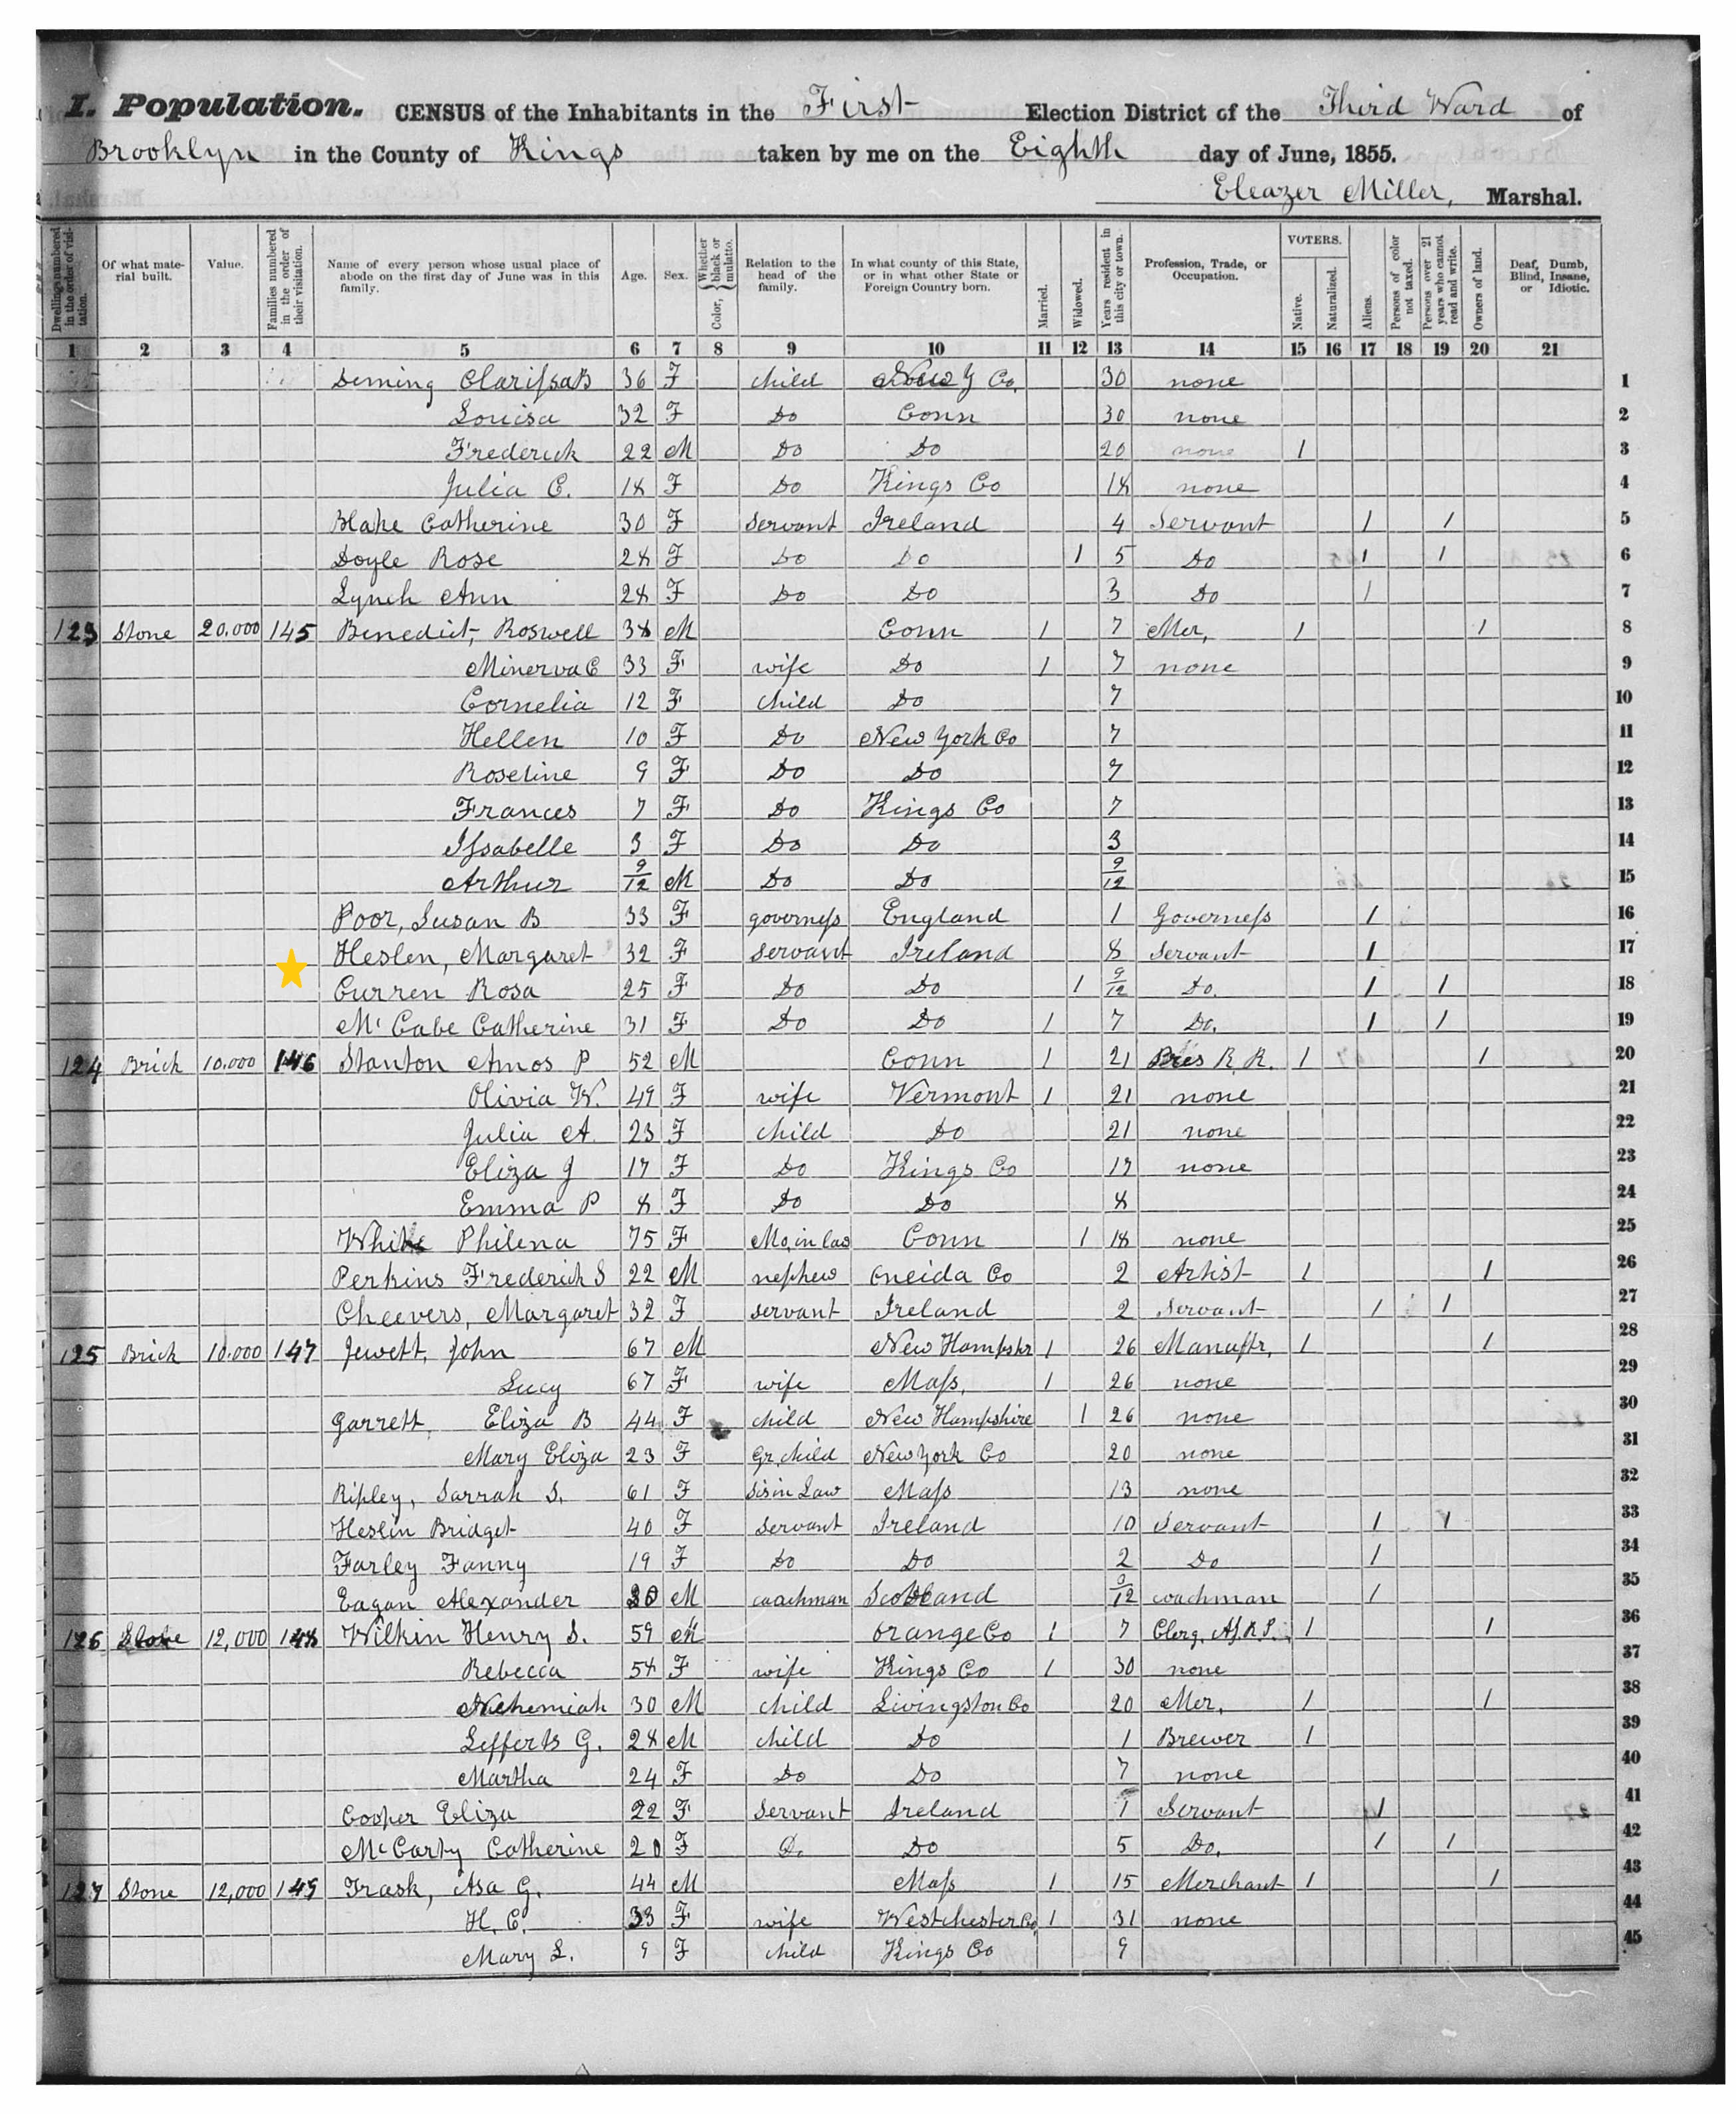 I. Population. CENSUS of the Inhabitants in the First Election District of the Third Ward of
Brooklyn in the County of Kings taken by me on the Eighth day of June, 1855.
Eleazer Miller, Marshal.
Dwellings numbered in the order of visitation. Of what material built. Value. Families numbered in the order of their visitation. Name of every person whose usual place of abode on the first day of June was in this family. Age. Sex. Color, Whether black or mulatto. Relation to the head of the family. In what county of this State, or in what other State or Foreign Country born. Married. Widowed. Years resident in this city or town. Profession, Trade, or Occupation. VOTERS. Native. Naturalized. Aliens. Persons of color not taxed. Persons over 21 years who cannot read and write. Owners of land. Deaf, Dumb, Blind, Insane, or Idiotic.
1 2 3 4 5 6 7 8 9 10 11 12 13 14 15 16 17 18 19 20 21
Deming Clarissa B 36 F child New Y Co. 30 none 1
Louisa 32 F Do Conn 30 none 2
Frederick 22 M Do Do 20 none 1 3
Julia C. 18 F Do Kings Co 18 none 4
Blake Catherine 30 F Servant Ireland 4 Servant 1 1 5
Doyle Rose 28 F Do Do 1 5 Do 1 1 6
Lynch Ann 28 F Do Do 3 Do 1 7
123 Stone 20.000 145 Benedict, Roswell 38 M Conn 1 7 Mer, 1 1 8
Minerva C 33 F wife Do 1 7 none 9
Cornelia 12 F child Do 7 10
Hellen 10 F Do New York Co 7 11
Roseline 9 F Do Do 7 12
Frances 7 F Do Kings Co 7 13
Issabelle 3 F Do Do 3 14
Arthur 9/12 M Do Do 9/12 15
Poor, Susan B 33 F governess England 1 Governess 1 16
Heslen, Margaret 32 F servant Ireland 8 Servant 1 17
Curren Rosa 25 F Do Do 1 9/12 Do. 1 1 18
Mc Cabe Catherine 31 F Do Do 1 7 Do. 1 1 19
124 Brick 10.000 146 Stanton Amos P 52 M Conn 1 21 Pres R. R. 1 1 20
Olivia W. 49 F wife Vermont 1 21 none 21
Julia A. 23 F child Do 21 none 22
Eliza J 17 F Do Kings Co 17 none 23
Emma P 8 F Do Do 8 24
White Philena 75 F Mo. in law Conn 1 18 none 25
Perkins Frederick S 22 M nephew Oneida Co 2 Artist 1 1 26
Cheevers, Margaret 32 F servant Ireland 2 Servant 1 1 27
125 Brick 10.000 147 Jewett, John 67 M New Hampshr 1 26 Manuftr, 1 1 28
Lucy 67 F wife Mass, 1 26 none 29
Garrett, Eliza B 44 F child New Hampshire 1 26 none 30
Mary Eliza 23 F Gr. child New York Co 20 none 31
Ripley, Sarrah S. 61 F Sis in Law Mass 13 none 32
Heslin Bridget 40 F Servant Ireland 10 Servant 1 1 33
Farley Fanny 19 F Do Do 2 Do 1 34
Eagan Alexander 30 M coachman Scotland 9/12 coachman 1 35
126 Stone 12,000 148 Wilkin Henry S. 59 M Orange Co 1 7 Clerg. 1 1 36
Rebecca 58 F wife Kings Co 1 30 none 37
Nehemiah 30 M child Livingston Co 20 Mer. 1 1 38
Lefferts G. 28 M child Do 1 Brewer 1 39
Martha 24 F Do Do 7 none 40
Cooper Eliza 22 F Servant Ireland 1 Servant 1 41
Mc Carty Catherine 20 F D. Do 5 Do. 1 1 42
127 Stone 12,000 149 Trask, Asa G. 44 M Mass 1 15 Merchant 1 1 43
H. C. 33 F wife Westchester Co, 1 31 none 44
Mary L. 9 F child Kings Co 9 45